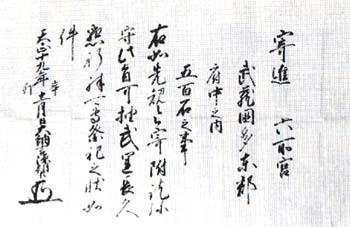 寄進 六所宮
武蔵国多東郡
府中之内
五百石之事
右如先規令寄附訖弥
守此旨可抽武運長久
懇祈殊可専祭祀之状如
件
天正十九年辛卯十一月日大納言源朝臣